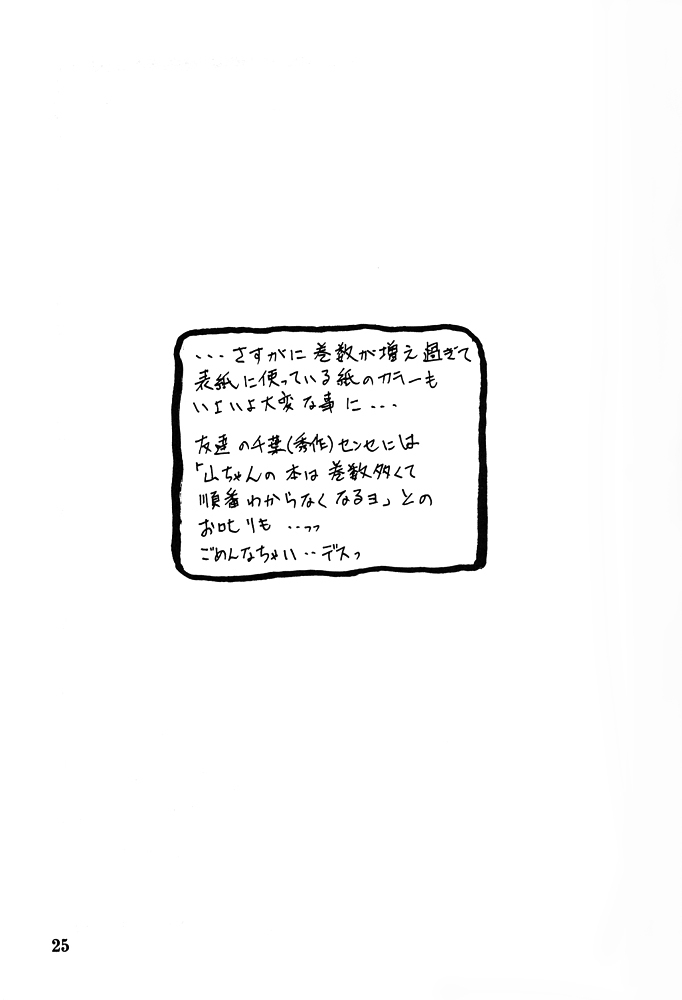 ・・・さすがに巻数が増え過ぎて
表紙に使っている紙のカラーも
いよいよ大変な事に・・・
友達の千葉(秀作)センセには
「山ちゃんの本は巻数多くて
順番わからなくなるヨ」との
お叱りも・・っっ
ごめんなちゃい・・デスっ
25